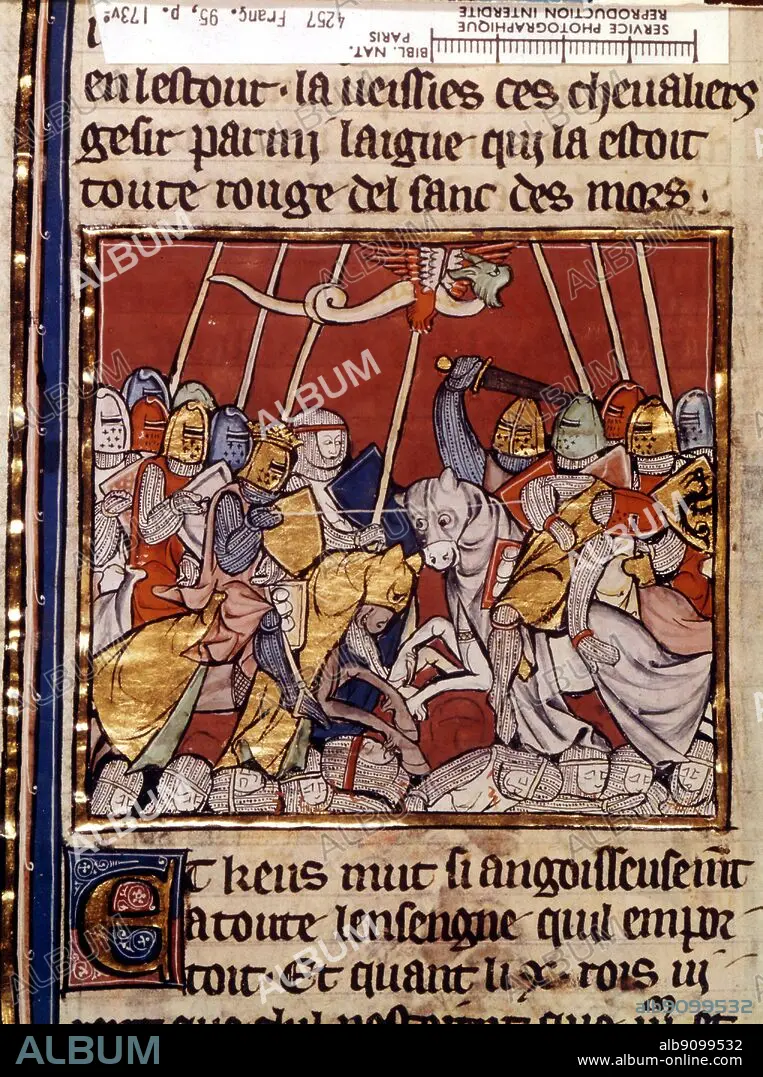 4257 Franç. 95, p. 173vº
BIBL. NAT.
PARIS
SERVICE PHOTOGRAPHIQUE
REPRODUCTION INTERDITE
en lestour · la ueissies ces cheualiers
gesir parmi laigue qui la estoit
toute rouge del sanc des mors ·
Et keus mut si angoisseusemt
a toute lensengne quil empor
toit · Et quant li · x · rois
ALBUM
ab9099532
ALBUM
ab9099532
www.album-online.com